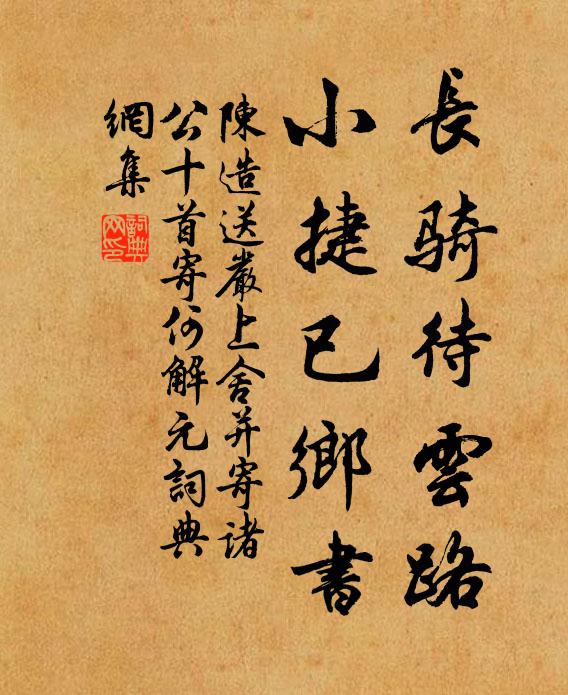 長骑待雲路
小捷已鄉書
陳造送嚴上舍并寄諸
公十首寄何解元詞典
網集
詞典
网印